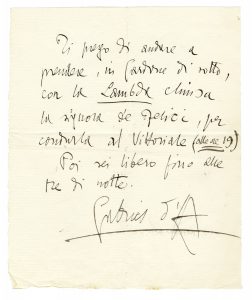 Ti prego di andare a
prendere, in Gardone di sotto,
con la Lambda chiusa
la signora de Felici, per
condurla al Vittoriale (alle ore 19)
Poi sei libero fino alle
tre di notte.
Gabriel d'A